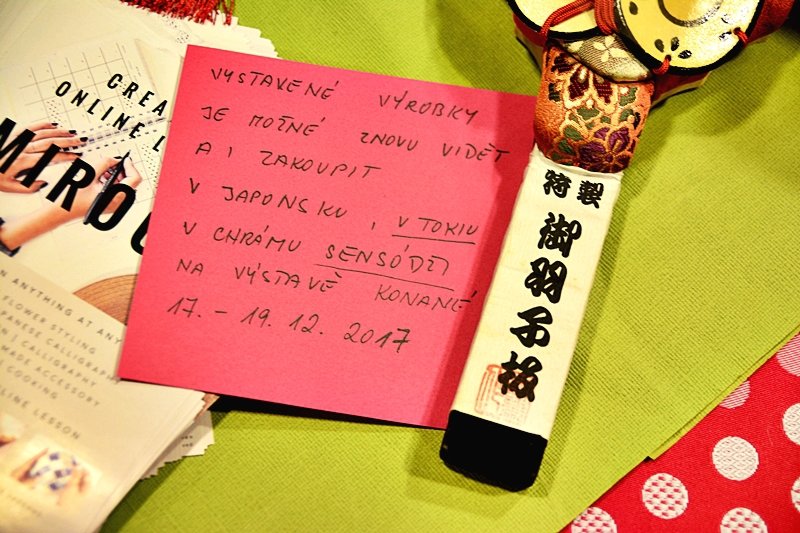 CREA
ONLINE L
MIROC
N ANYTHING AT ANY
FLOWER STYLING
PANESE CALLIGRA
I CALLIGRAPHY
MADE ACCESSORY
COOKING
LINE LESSON
VYSTAVENÉ VÝROBKY
JE MOŽNÉ ZNOVU VIDĚT
A I ZAKOUPIT
V JAPONSKU, V TOKIU
V CHRÁMU SENSÓDŽI
NA VÝSTAVĚ KONANÉ
17. - 19. 12. 2017
特製
御羽子板